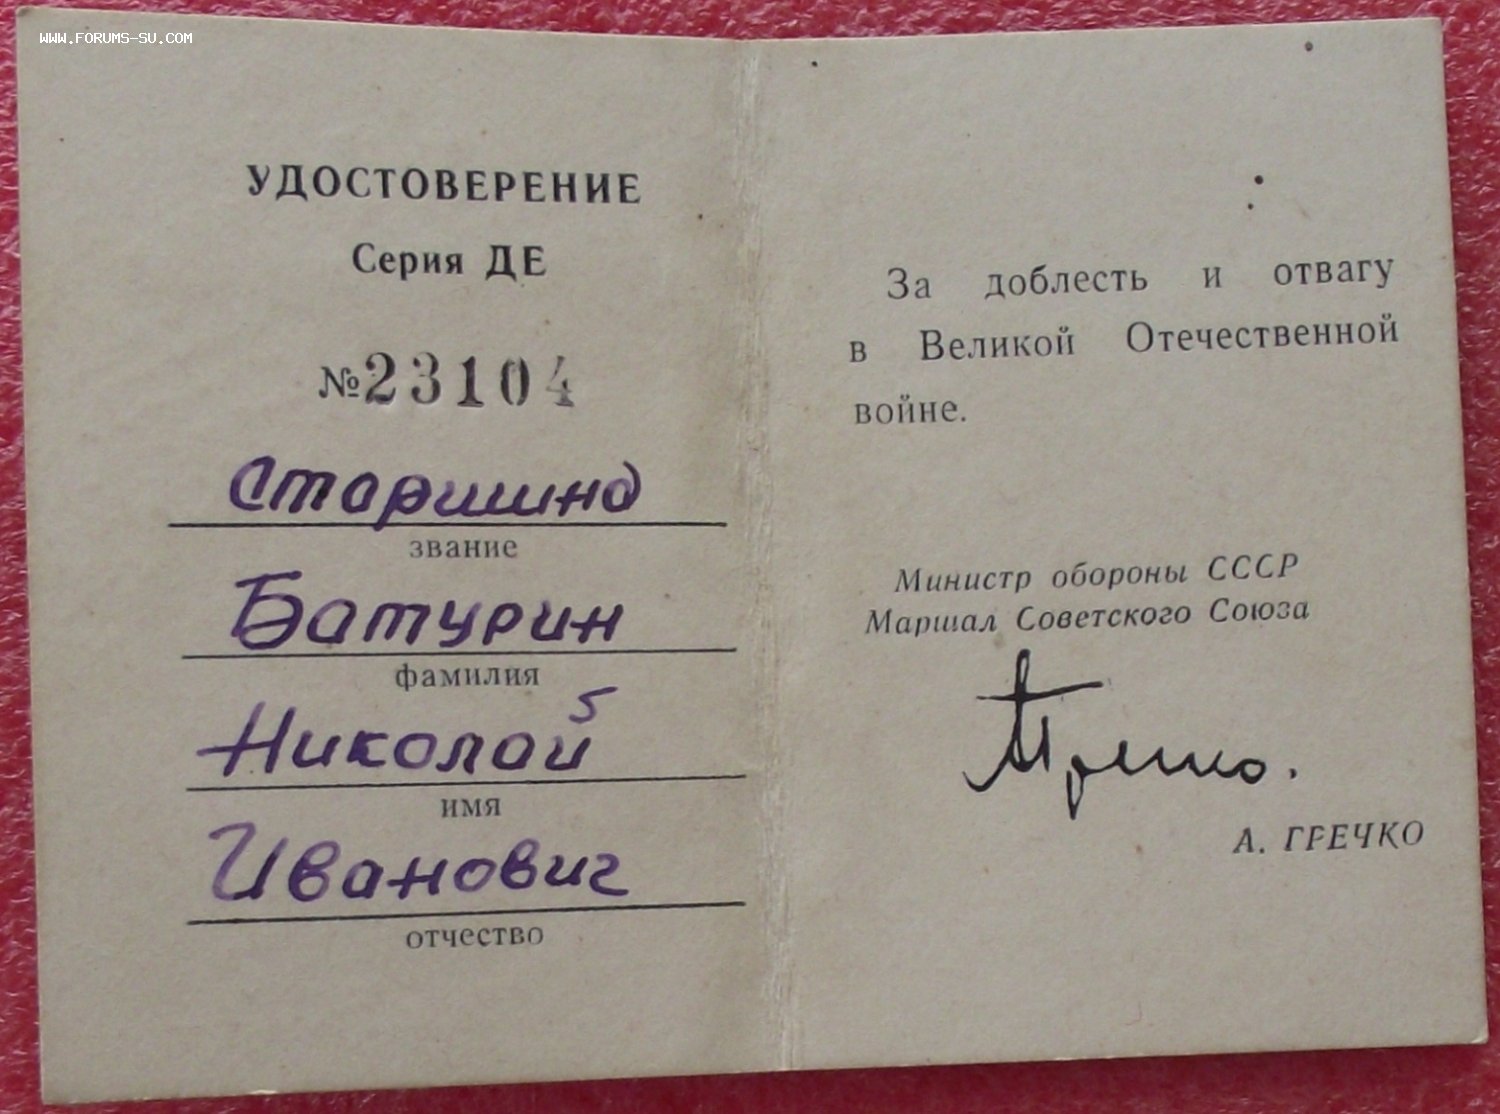 WWW.FORUMS-SU.COM
УДОСТОВЕРЕНИЕ
Серия ДЕ
№23104
Старшина
звание
Батурин
фамилия
Николай
имя
Иванович
отчество
За доблесть и отвагу
в Великой Отечественной
войне.
Министр обороны СССР
Маршал Советского Союза
А Гречко.
А. ГРЕЧКО